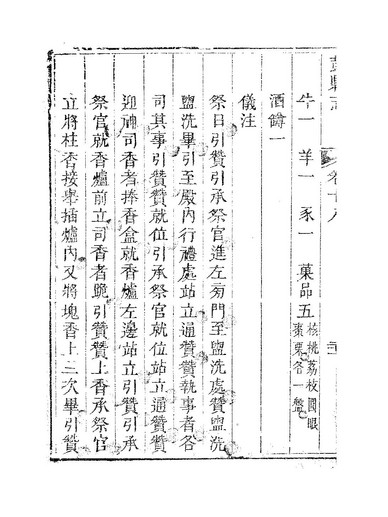 牛一 羊一 豕一 菓品五 核桃荔枝圓眼棗栗各一盤
酒罇一
儀注
祭日引贊引承祭官進左旁門至盥洗處贊盥洗
盥洗畢引至殿內行禮處站立通贊贊執事者各
司其事引贊贊就位引承祭官就位站立通贊贊
迎神司香者捧香盒就香爐左邊站立引贊引承
祭官就香爐前立司香者跪引贊贊上香承祭官
立將炷香接舉插爐內又將塊香上三次畢引贊